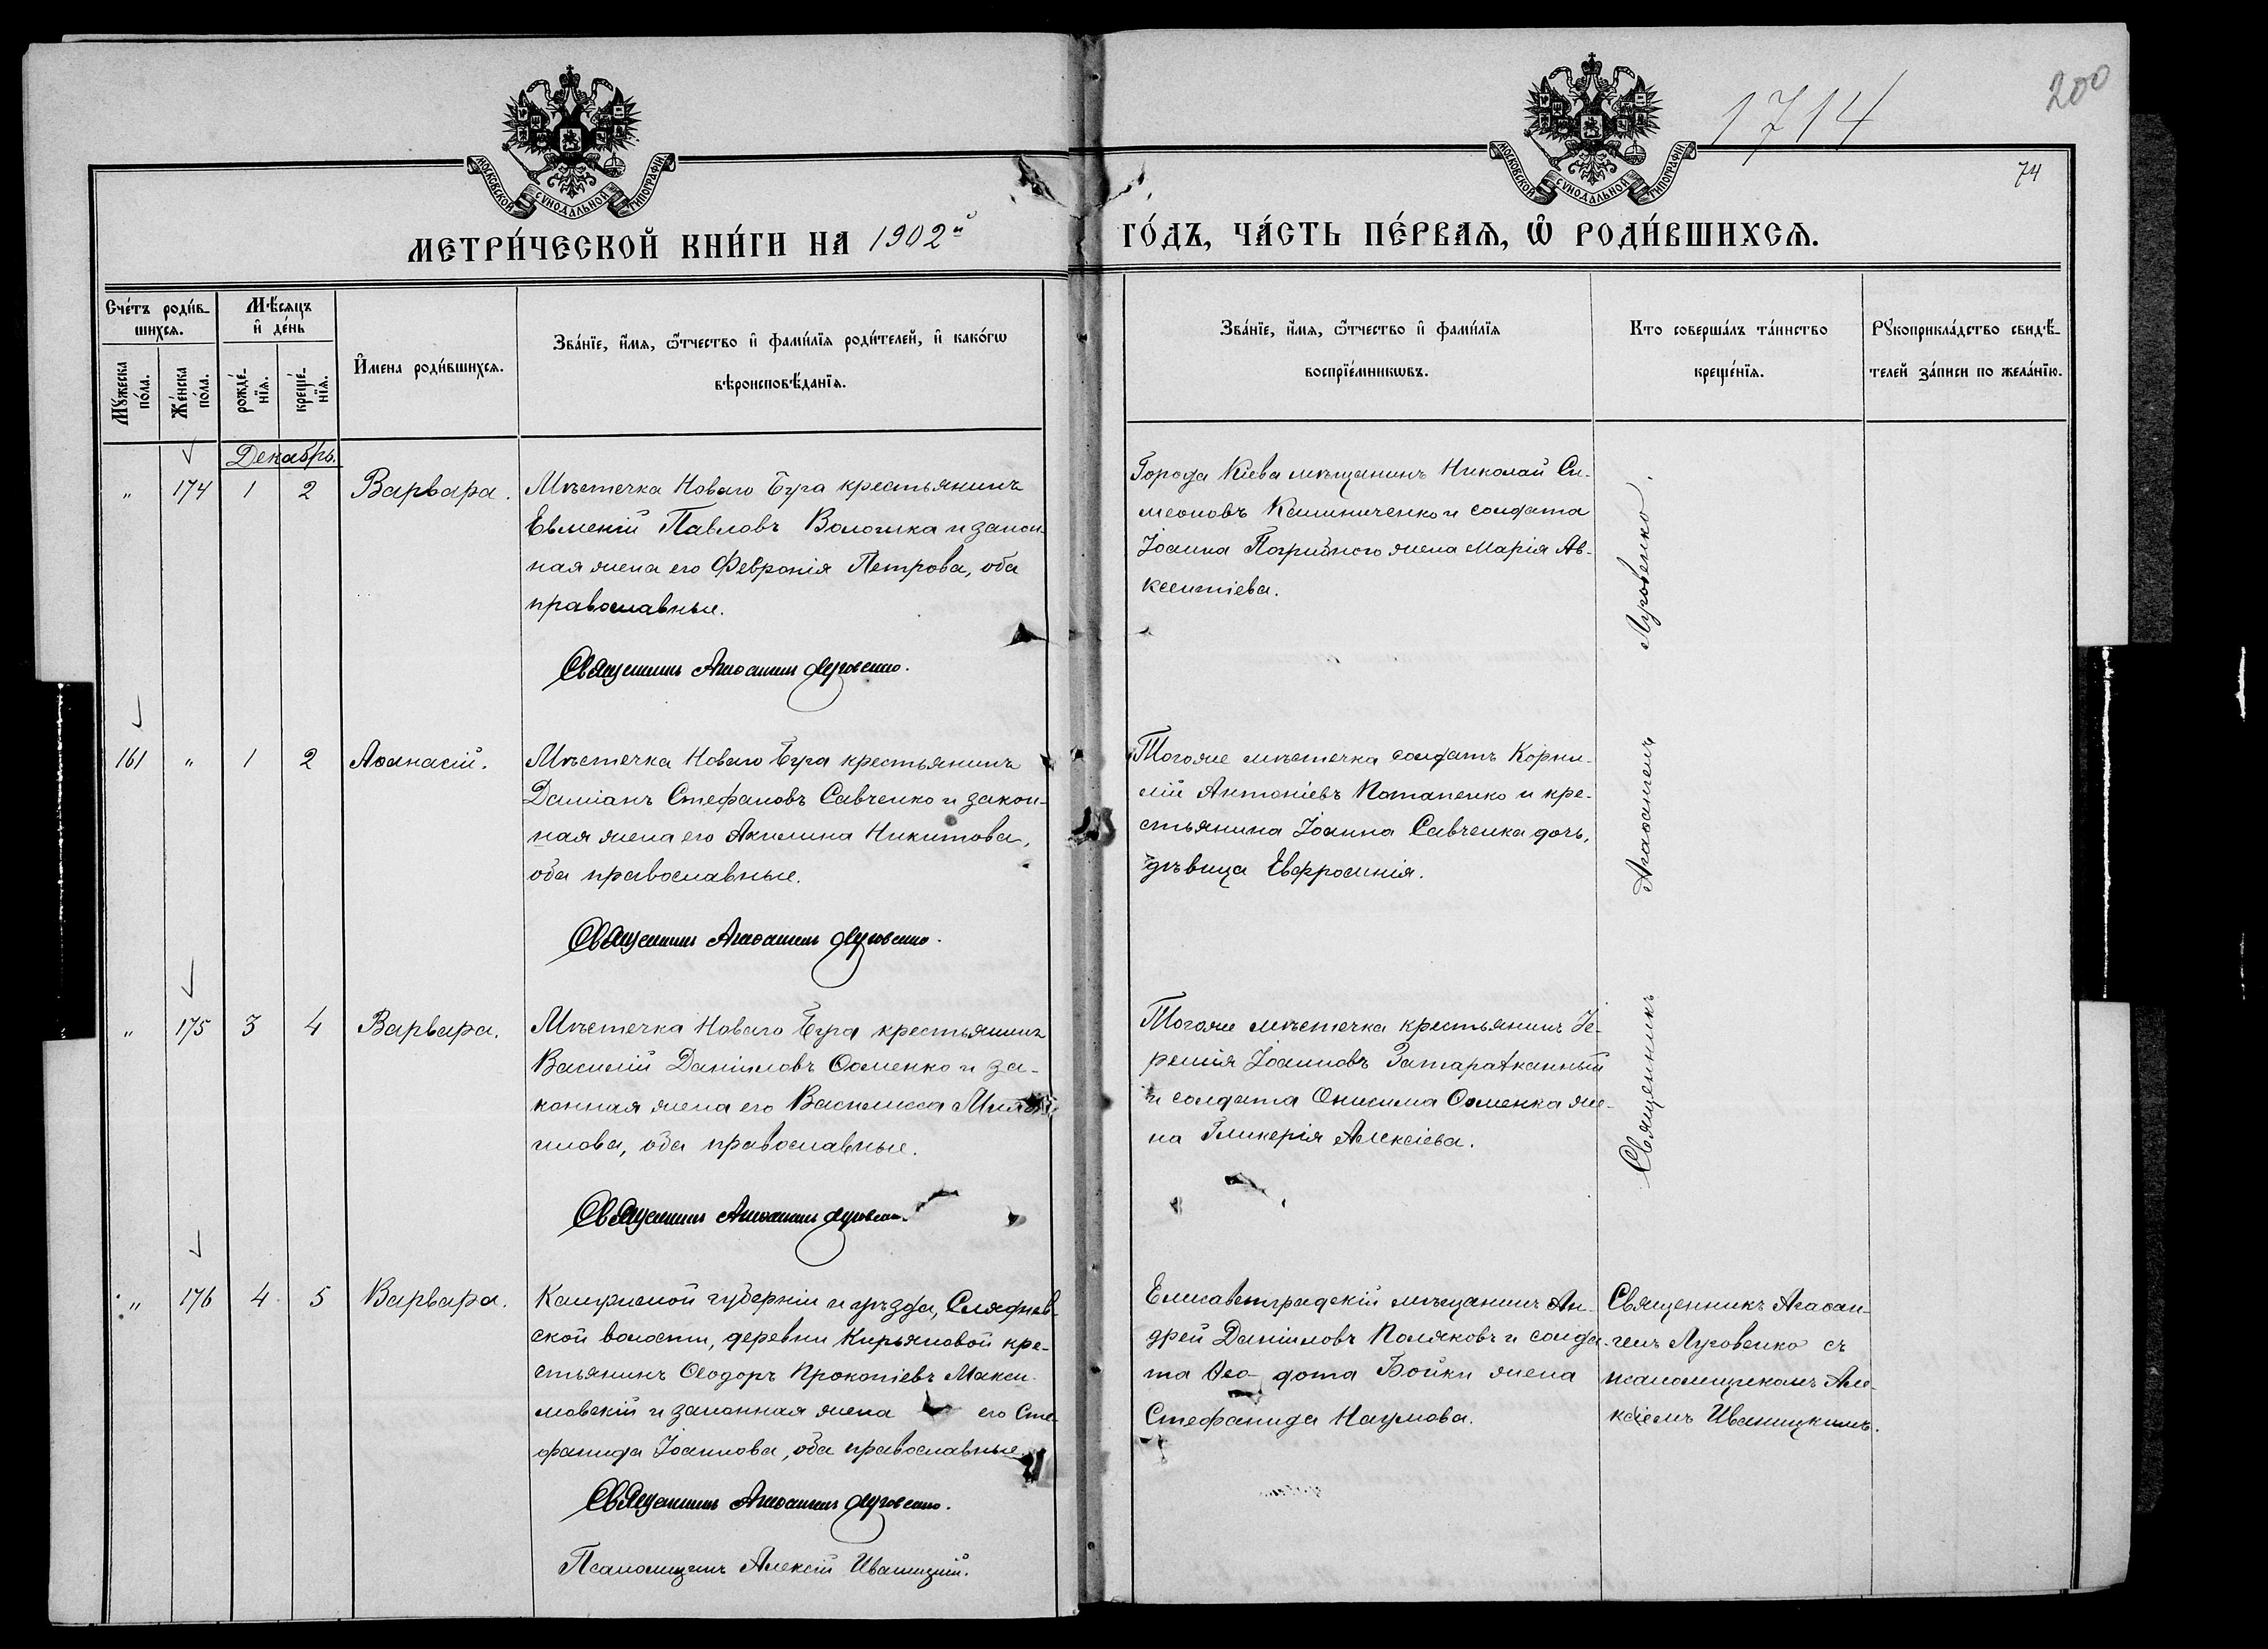 200
1714
74
МОСКОВСКОЙ СѴНОДАЛЬНОЙ ТИПОГРАФІИ
МОСКОВСКОЙ СѴНОДАЛЬНОЙ ТИПОГРАФІИ
МЕТРИ́ЧЕСКОЙ КНИ́ГИ НА 1902й ГО́ДЪ, ЧА́СТЬ ПЕ́РВАѦ, Ѽ РОДИ́ВШИХСѦ.
Сче́тъ роди́в-
шихсѧ.
Мꙋжеска по́ла.
Же́нска по́ла.
Мѣ́сѧцъ
и҆ де́нь
рожде́-
нїѧ.
креще́-
нїѧ.
И҆́мена роди́вшихсѧ.
Зва́нїе, и҆́мѧ, ѻ҆́тчество и҆ фами́лїѧ роди́телей, и҆ како́гѡ
вѣроисповѣ́данїѧ.
Зва́нїе, и҆́мѧ, ѻ҆́тчество и҆ фами́лїѧ
воспрїе́мникѡвъ.
Кто соверша́лъ та́инство
креще́нїѧ.
Рꙋкоприкла́дство свидѣ́-
телей за́писи по жела́нїю.
Декабрь.
" 174 1 2 Варвара.
Мѣстечка Новаго Буга крестьянинъ
Евменій Павловъ Волошка и закон-
ная жена его Февронія Петрова, оба
православные.
Священникъ Агаѳангелъ Луговенко.
Города Кіева мѣщанинъ Николай Си-
меоновъ Калиниченко и солдата
Іоанна Погрибного жена Марія Ав-
ксентіева.
161 " 1 2 Аѳанасій.
Мѣстечка Новаго Буга крестьянинъ
Даміанъ Стефановъ Савченко и закон-
ная жена его Акилина Никитова,
оба православные.
Священникъ Агаѳангелъ Луговенко.
Тогоже мѣстечка солдатъ Корни-
лій Антоніевъ Потапенко и кре-
стьянина Іоанна Савченка дочь,
дѣвица Евфросинія.
" 175 3 4 Варвара.
Мѣстечка Новаго Буга крестьянинъ
Василій Даніиловъ Ѳоменко и за-
конная жена его Василисса
оба православные.
Священникъ Агаѳангелъ Луговенко.
Тогоже мѣстечка крестьянинъ Іе-
ремія Іоанновъ Затараканный
и солдата Онисима Ѳоменка же-
на Гликерія Алексіева.
Священникъ Агаѳангелъ Луговенко.
" 176 4 5 Варвара.
Калужской губерніи и уѣзда,
ской волости, деревни Кирьяновой кре-
стьянинъ Ѳеодоръ Прокопіевъ Макси-
мовскій и законная жена его Сте-
фанида Іоаннова, оба православные.
Священникъ Агаѳангелъ Луговенко.
Псаломщикъ Алексій Иваницкій.
Елисаветградскій мѣщанинъ Ан-
дрей Даніиловъ Поляковъ и солда-
та Ѳео- дота Бойки жена
Стефанида Наумова.
Священникъ Агаѳан-
гелъ Луговенко съ
псаломщикомъ Але-
ксіемъ Иваницкимъ.